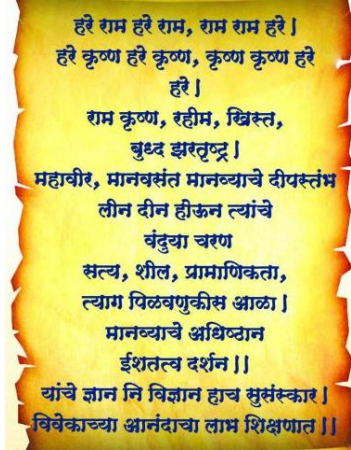 हरे राम हरे राम, राम राम हरे |
हरे कृष्ण हरे कृष्ण, कृष्ण कृष्ण हरे
हरे |
राम कृष्ण, रहीम, ख्रिस्त,
बुध्द झरतृष्ट्र |
महावीर, मानवसंत मानव्याचे दीपस्तंभ
लीन दीन होऊन त्यांचे
वंदुया चरण
सत्य, शील, प्रामाणिकता,
त्याग पिळवणुकीस आळा |
मानव्याचे अधिष्ठान
ईशतत्व दर्शन ||
यांचे ज्ञान नि विज्ञान हाच सुसंस्कार |
विवेकाच्या आनंदाचा लाभ शिक्षणात ||